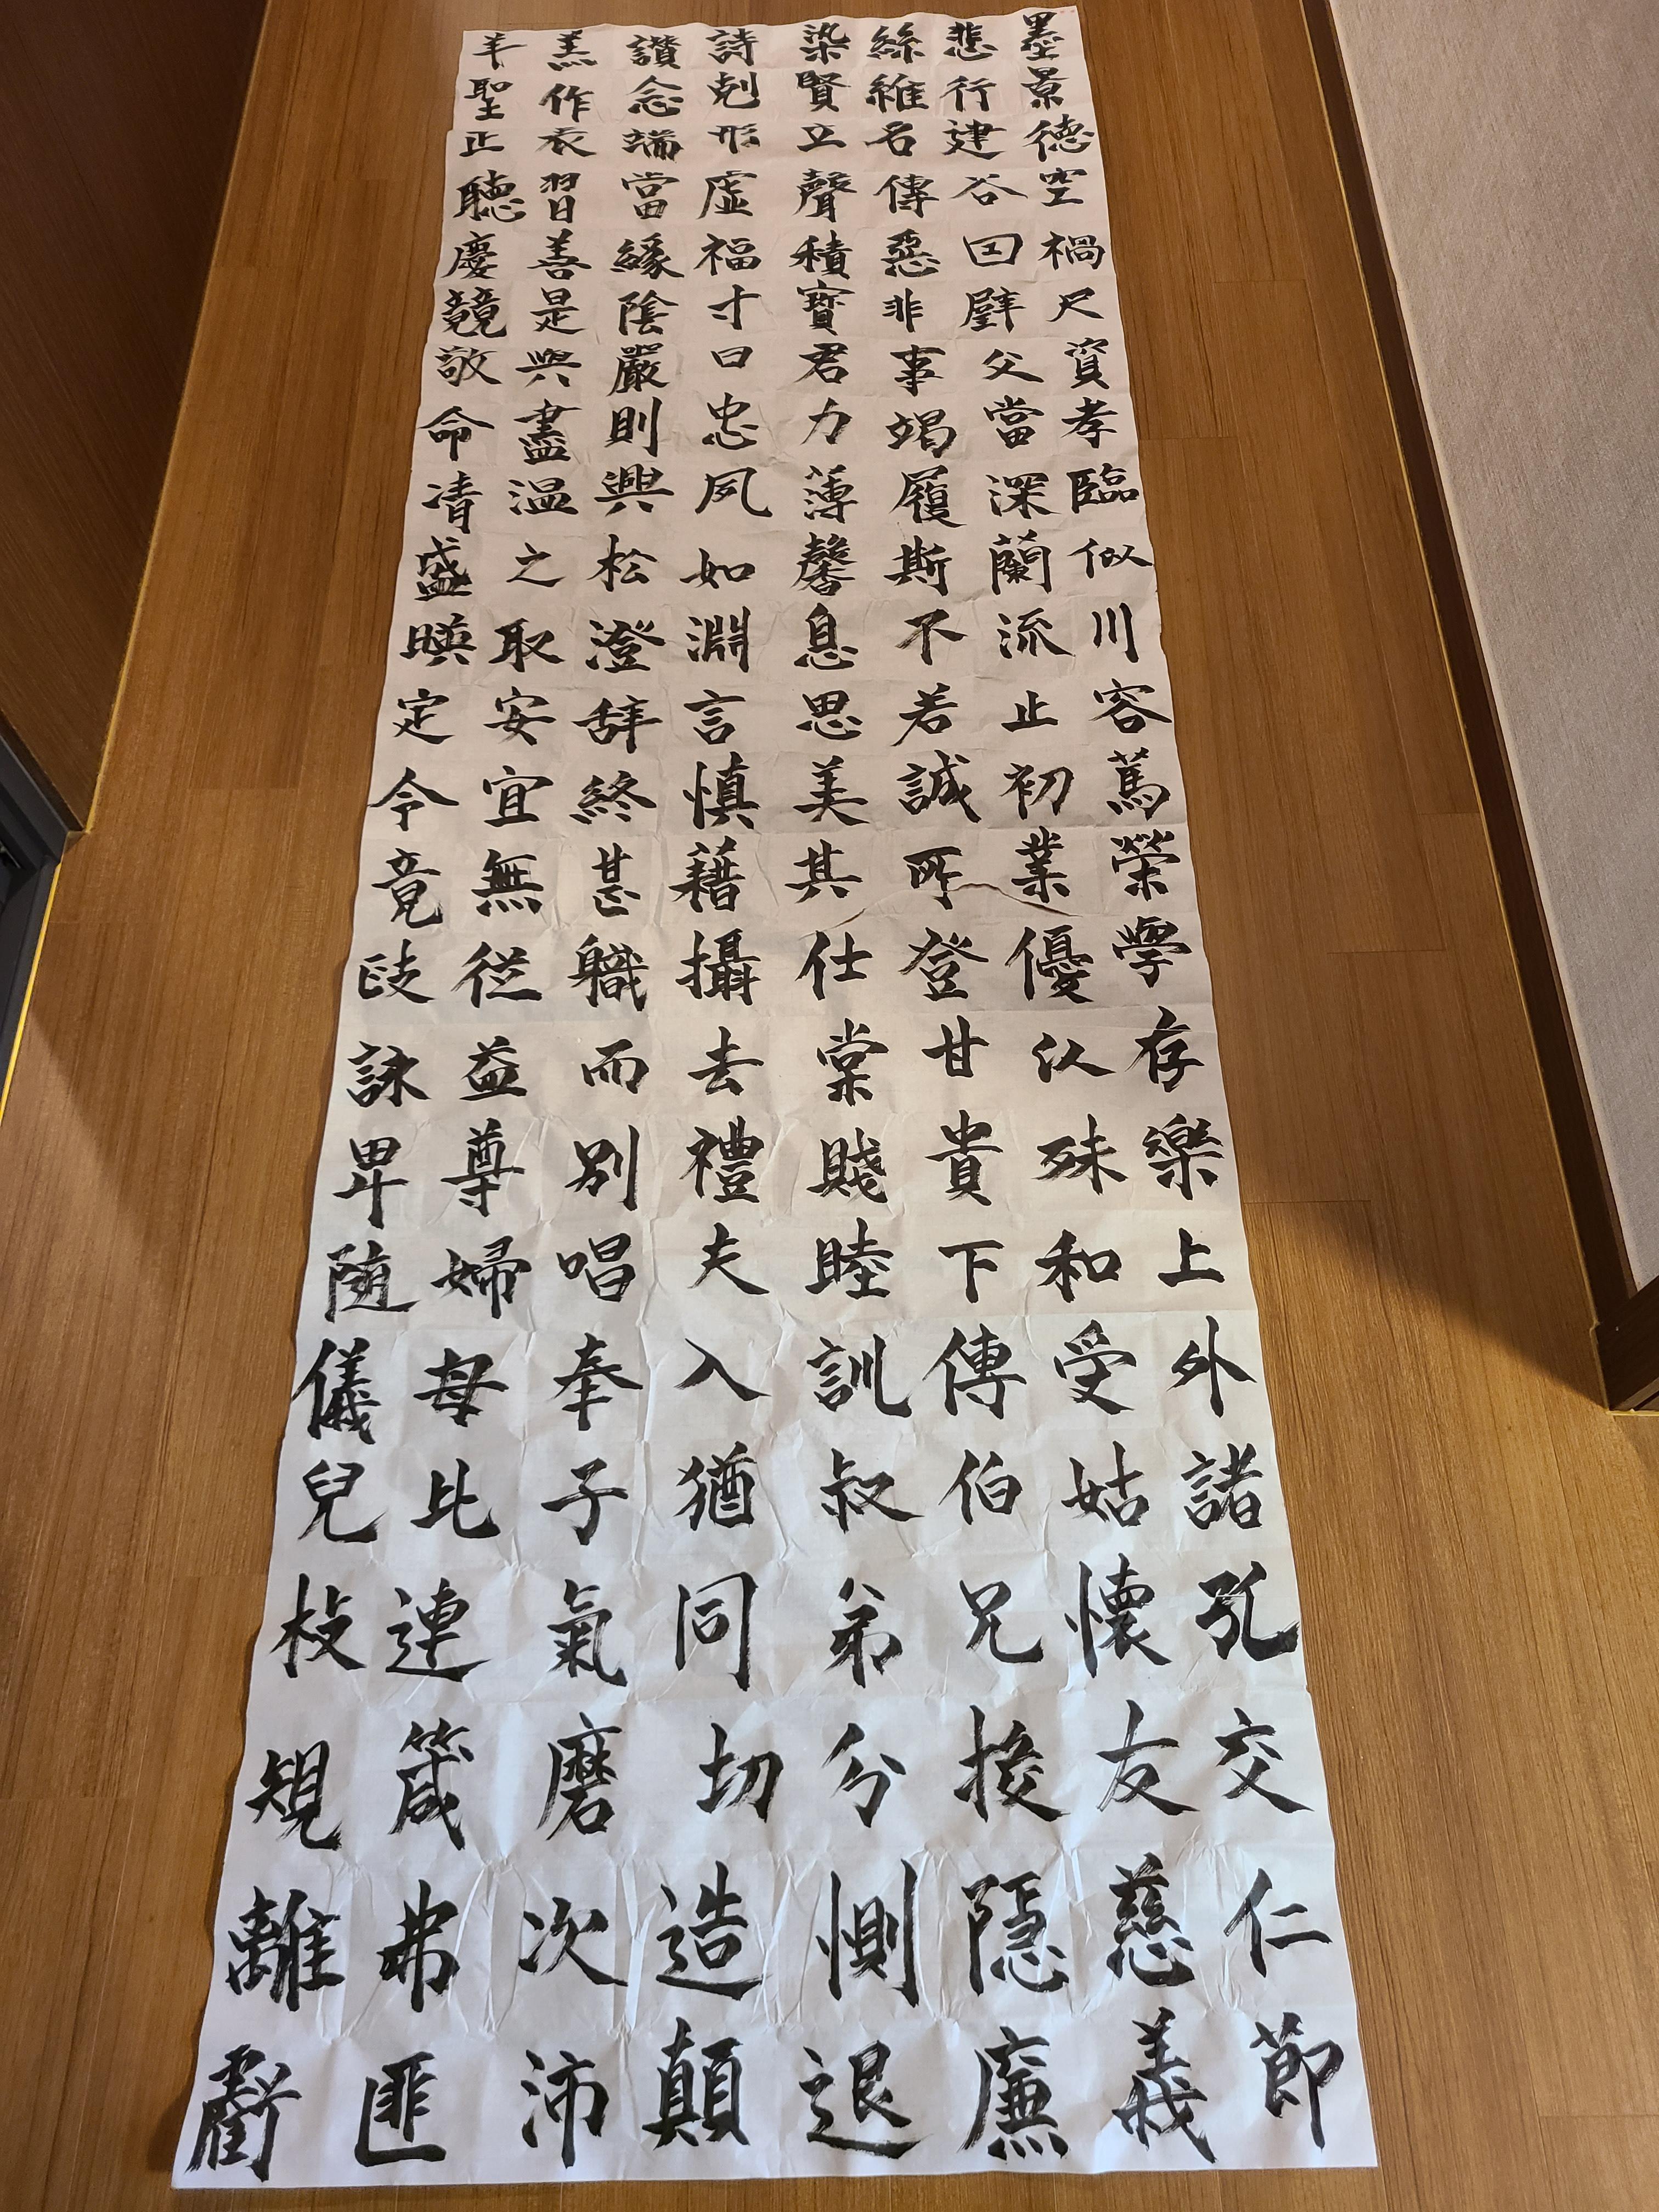 墨悲絲染詩讚羔羊
景行維賢剋念作聖
德建名立形端表正
空谷傳聲虛當習聽
禍因惡積福緣善慶
尺璧非寶寸陰是競
資父事君曰嚴與敬
孝當竭力忠則盡命
臨深履薄夙興温凊
似蘭斯馨如松之盛
川流不息淵澄取暎
容止若思言辞安定
篤初誠美慎終宜令
榮業所其藉甚無竟
學優登仕攝職從政
存以甘棠去而益詠
樂殊貴賤禮別尊卑
上和下睦夫唱婦随
外受傳訓入奉母儀
諸姑伯叔猶子比兒
孔懷兄弟同氣連枝
交友投分切磨箴規
仁慈隱惻造次弗離
節義廉退顛沛匪虧